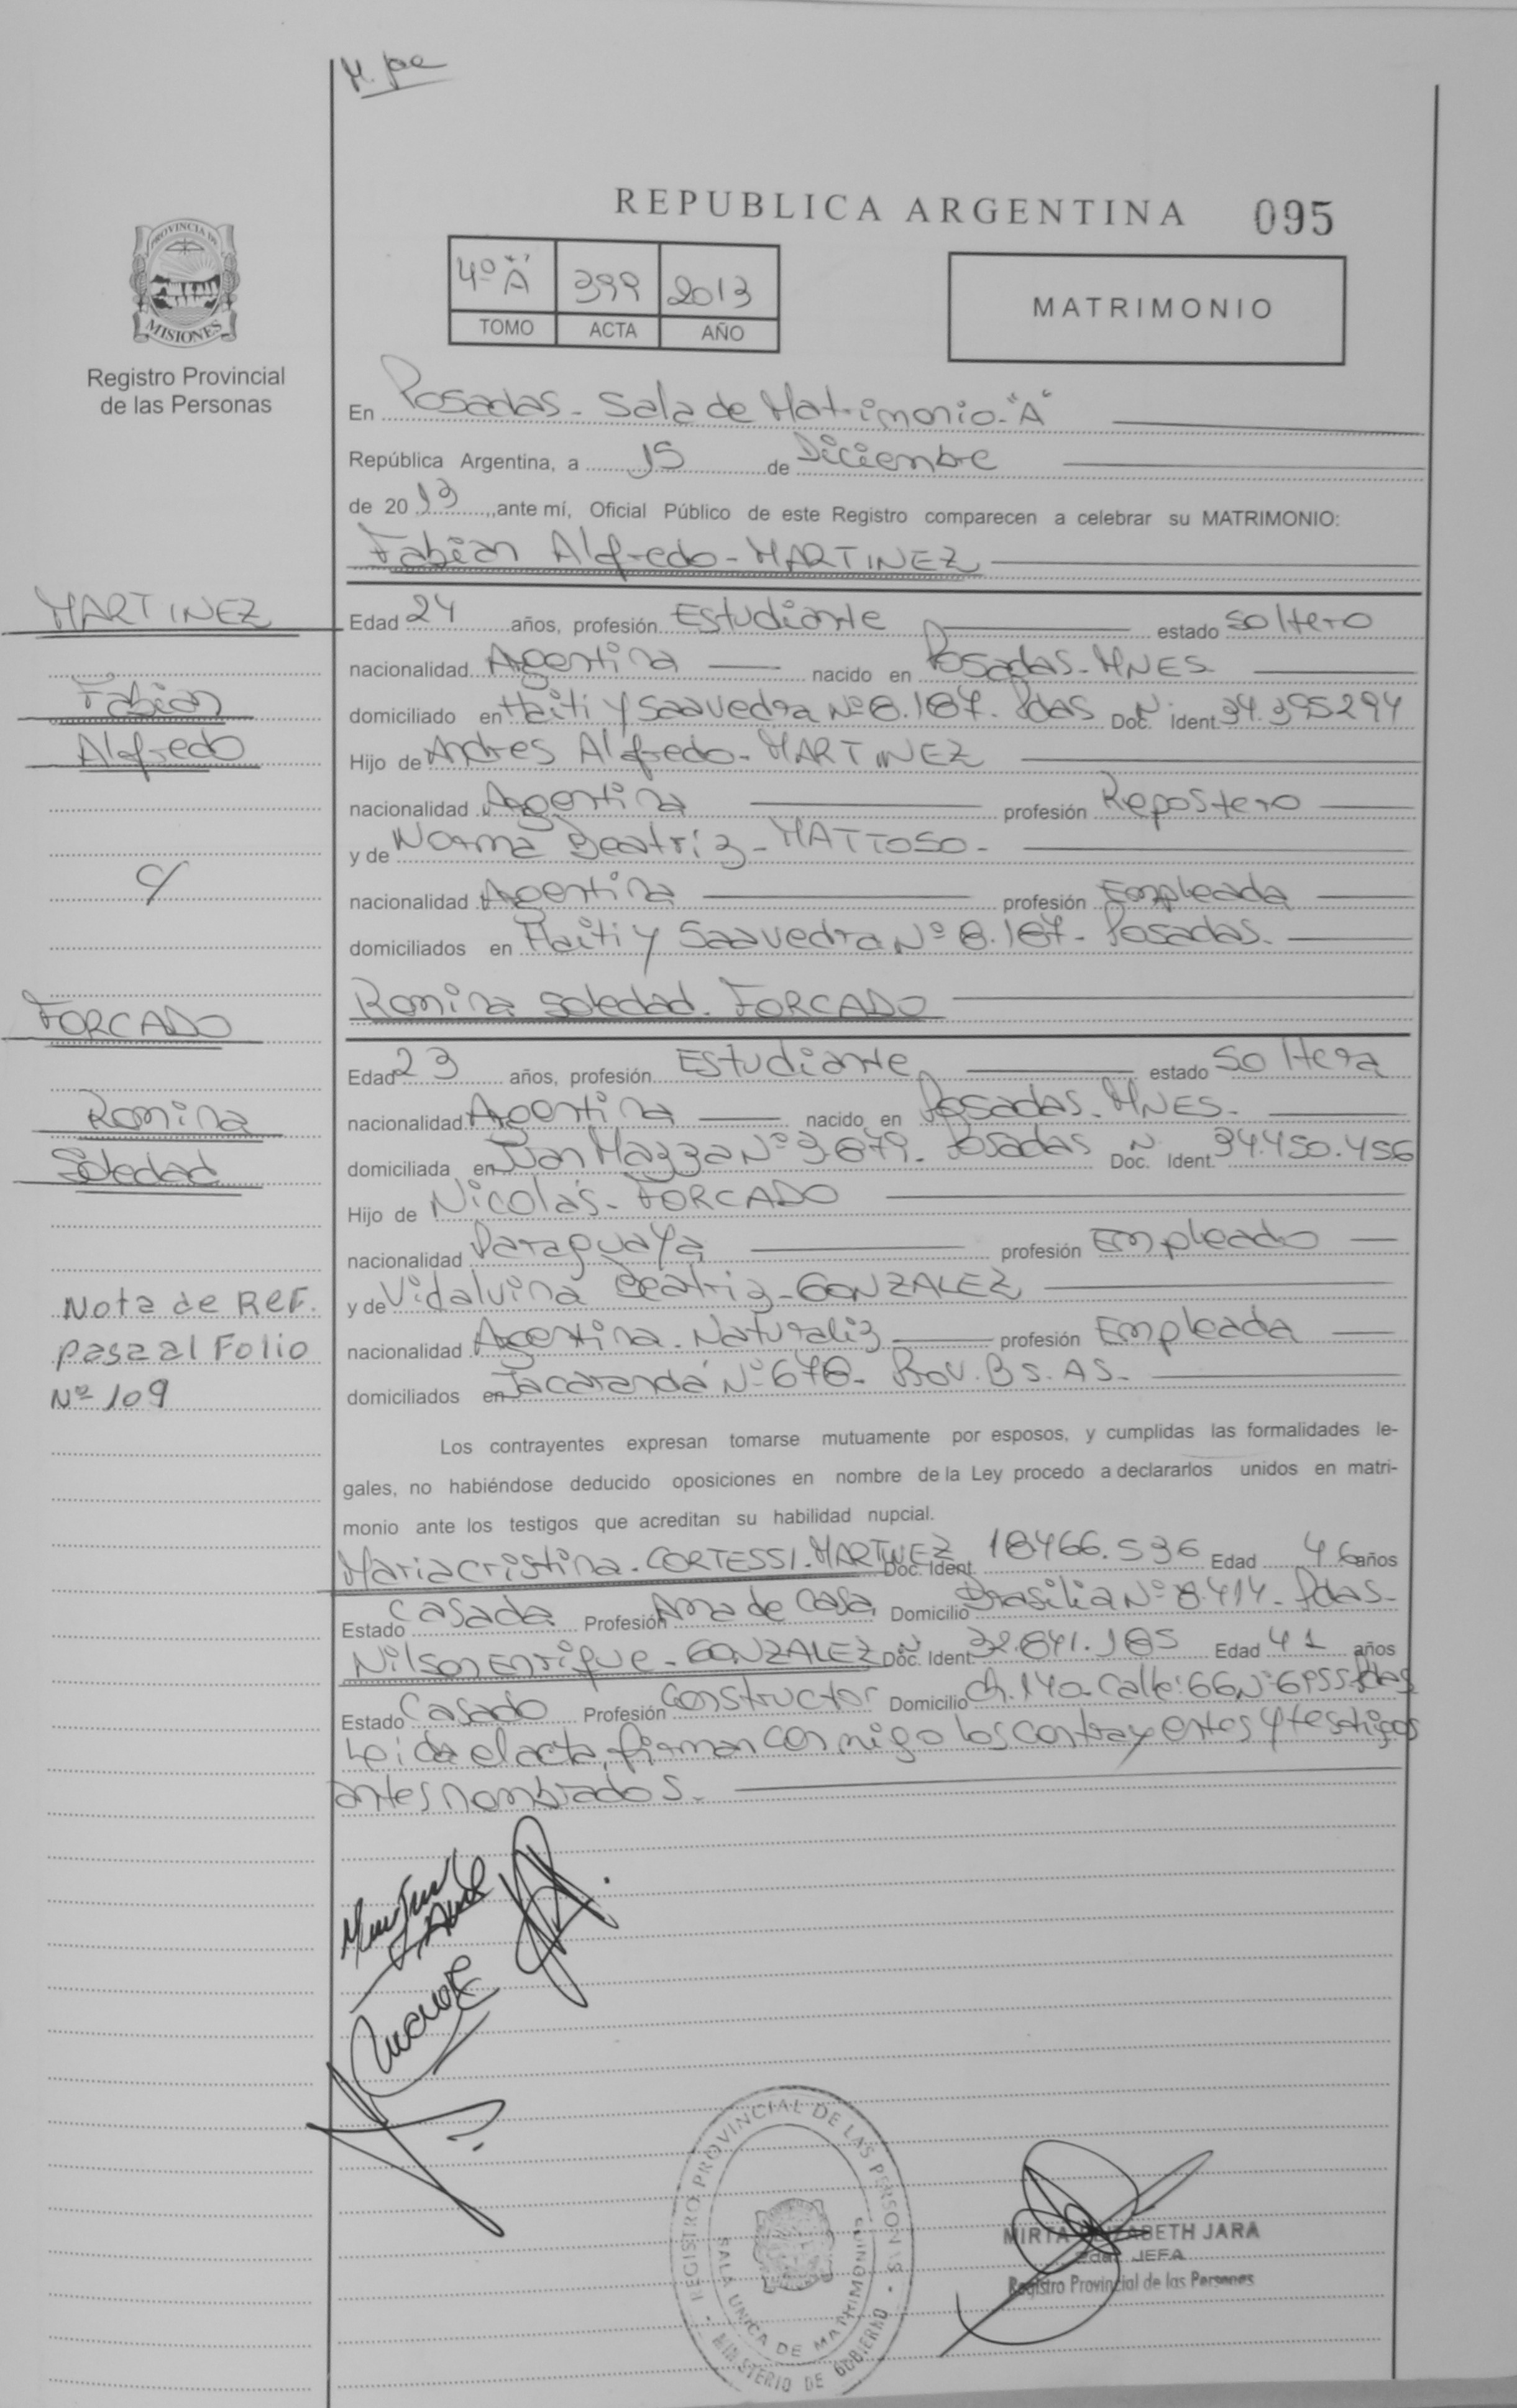 REPUBLICA ARGENTINA 095
PROVINCIA DE
MISIONES
Registro Provincial
de las Personas
4º "A" 399 2013
TOMO ACTA AÑO
MATRIMONIO
En Posadas - Sala de Matrimonio - "A"
República Argentina, a 15 de Diciembre
de 2013, ante mí, Oficial Público de este Registro comparecen a celebrar su MATRIMONIO:
Fabian Alfredo - MARTINEZ
MARTINEZ
Fabian
Alfredo
c/
FORCADO
Romina
Soledad
Nota de REF.
pasa al Folio
Nº 109
Edad 24 años, profesión Estudiante estado Soltero
nacionalidad Argentina nacido en Posadas - MNES.
domiciliado en Haiti y Saavedra Nº 8.187. Pdas Doc. N. Ident. 34.395294
Hijo de Andres Alfredo - MARTINEZ
nacionalidad Argentina profesión Repostero
y de Norma Beatriz - MATTOSO -
nacionalidad Argentina profesión Empleada
domiciliados en Haiti y Saavedra Nº 8.187 - Posadas.
Romina Soledad. FORCADO
Edad 23 años, profesión Estudiante estado Soltera
nacionalidad Argentina nacido en Posadas. MNES.
domiciliada en Juan Mazza Nº 3.679. Posadas Doc. N. Ident. 34.450.456
Hijo de Nicolás - FORCADO
nacionalidad Paraguaya profesión Empleado
y de Vidalvina Beatriz - GONZALEZ
nacionalidad Argentina. Naturaliz profesión Empleada
domiciliados en Jacarandá Nº 678 - Prov. BS. AS.
Los contrayentes expresan tomarse mutuamente por esposos, y cumplidas las formalidades le-
gales, no habiéndose deducido oposiciones en nombre de la Ley procedo a declararlos unidos en matri-
monio ante los testigos que acreditan su habilidad nupcial.
Maria cristina. CORTESSI. MARTINEZ Doc. Ident. 18466.536 Edad 46 años
Estado Casada Profesión Ama de Casa Domicilio Brasilia Nº 8.414 - Pdas -
Nilson Enrique - GONZALEZ Doc. N. Ident. 32.841.185 Edad 41 años
Estado Casado Profesión Constructor Domicilio Ch. 140 - Calle: 66 Nº Pdas
Leida el acta, firman con migo los contrayentes y testigos
antes nombrados.
REGISTRO PROVINCIAL DE LAS PERSONAS
SALA UNICA DE MATRIMONIO
MINISTERIO DE GOBIERNO
MIRTA ELIZABETH JARA
2da. JEFA
Registro Provincial de las Personas